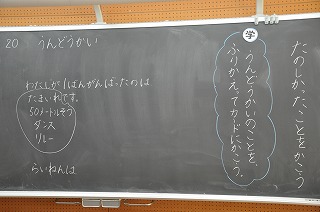 たのしかったことをかこう
学
うんどうかいのことを、
ふりかえってカードにかこう。
20 うんどうかい
わたしが1ばんがんばったのは
たまいれです。
50メートルそう
ダンス
リレー
らいねんは